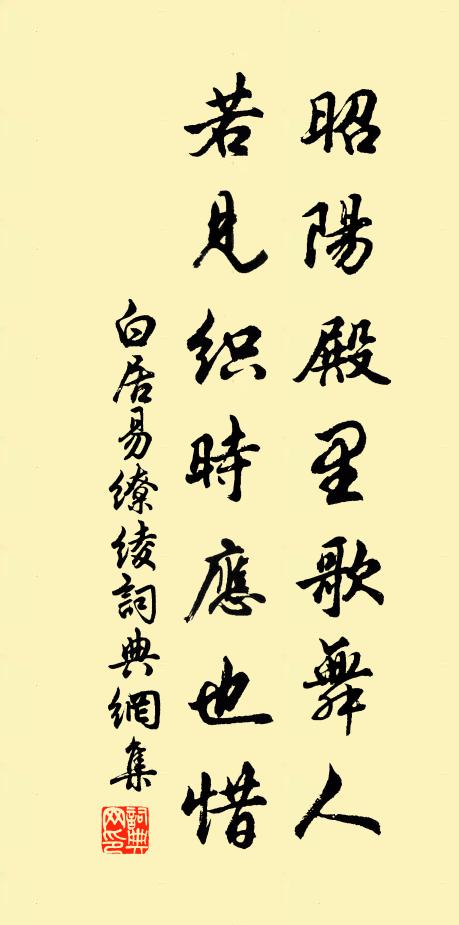 昭陽殿里歌舞人
若見織時應也惜
白居易繚綾詞典網集
詞典網印